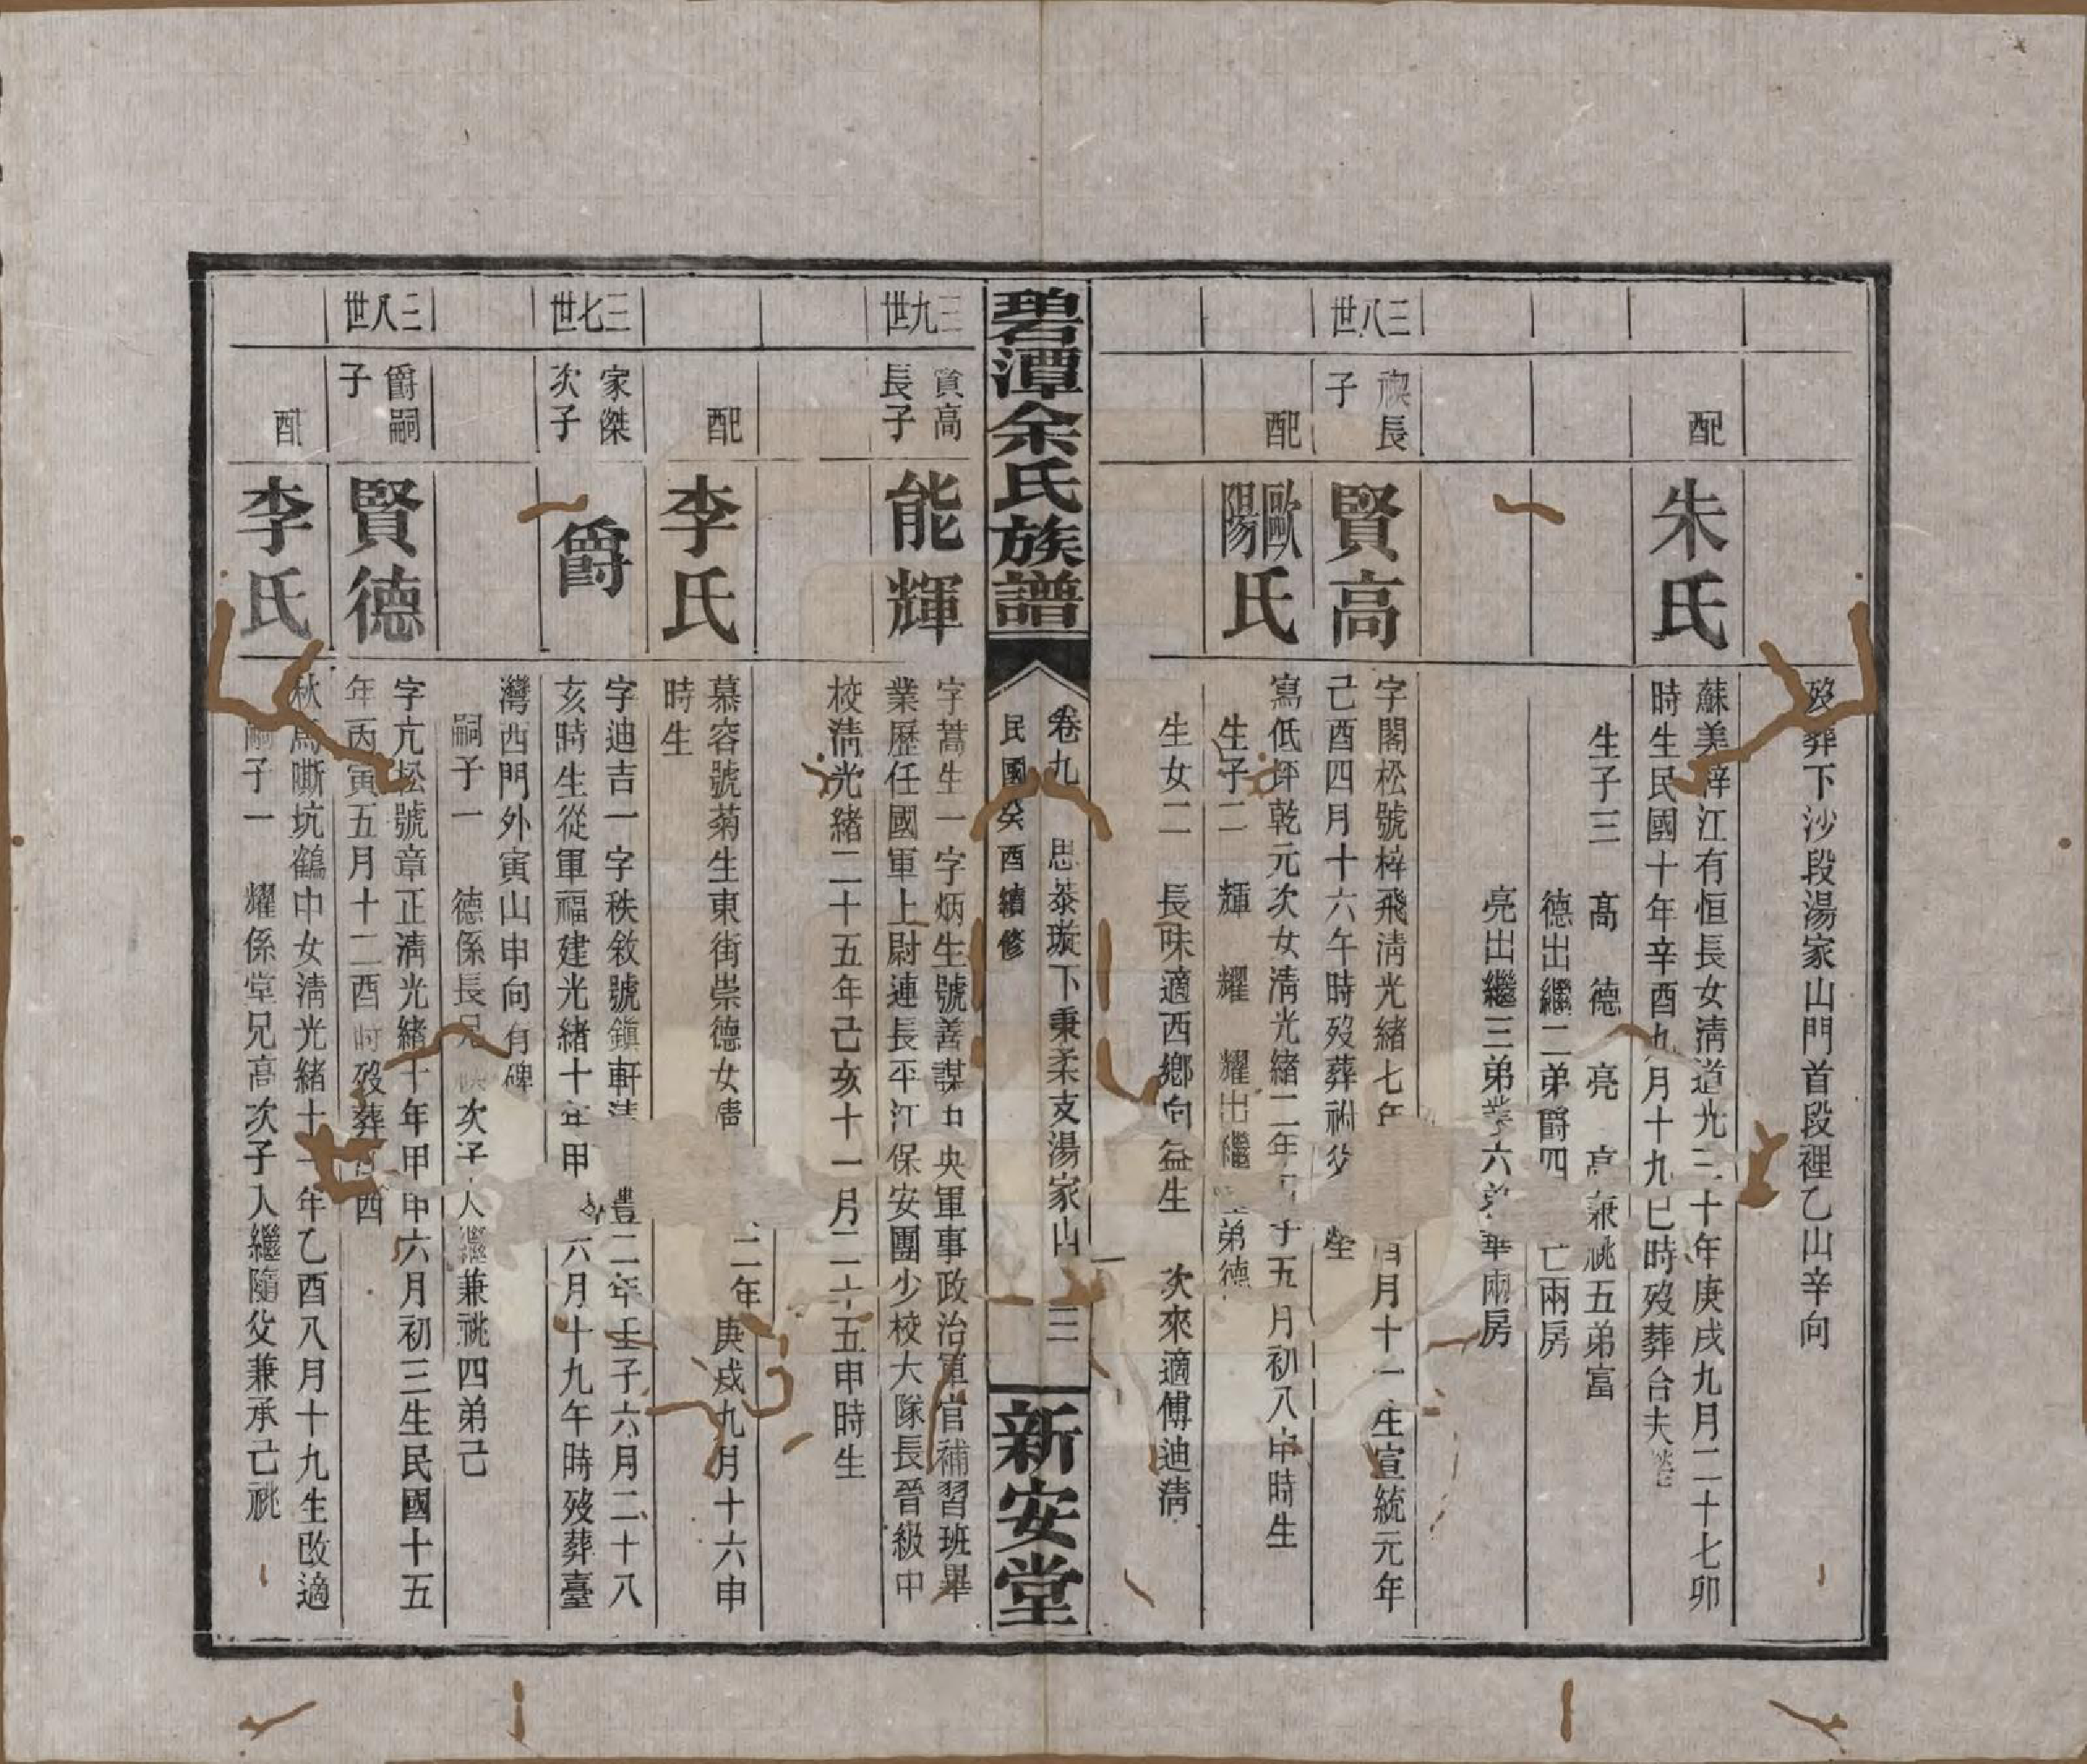 歿葬下沙段湯家山門首段裡乙山辛向
配
朱氏
蘇美梓江有恒長女淸道光三十年庚戌九月二十七卯
時生民國十年辛酉九月十九巳時歿葬合夫塋
生子三 高 德 亮 高兼祧五弟富
德出繼二弟爵四 亡兩房
亮出繼三弟 六弟華兩房
三八世
禊長
子
賢高
字閣松號梓飛淸光緖七年 月十一 生宣統元年
己酉四月十六午時歿葬祔父塋
配
歐陽氏
寫低坪乾元次女淸光緖二年 子五月初八申時生
生子二 輝 耀 耀出繼 弟德
生女二 長味適西鄉向益生 次來適傅迪淸
碧潭余氏族譜
卷九 思恭璇下秉柔支湯家山 三
民國癸酉續修
新安堂
三九世
賢高
長子
能輝
字蒿生一字炳生號善謀中央軍事政治軍官補習班畢
業歷任國軍上尉連長平江保安團少校大隊長晉級中
校淸光緖二十五年己亥十一月二十五申時生
配
李氏
慕容號菊生東街崇德女淸 二年庚戌九月十六申
時生
三七世
家傑
次子
爵
字迪吉一字秩敘號鎭軒淸 豐二年壬子六月二十八
亥時生從軍福建光緖十年甲 六月十九午時歿葬臺
灣西門外寅山申向有碑
嗣子一 德係長兄 次子入繼兼祧四弟己
三八世
爵嗣
子
賢德
字亢松號章正淸光緖十年甲申六月初三生民國十五
年丙寅五月十二酉時歿葬 西
配
李氏
秋馬嘶坑鶴中女淸光緖十一年乙酉八月十九生改適
嗣子一 耀係堂兄高次子入繼隨父兼承己祧